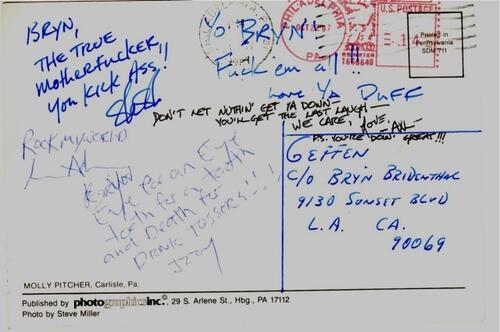 BRYN,
THE TRUE
MOTHERFUCKER!!
YOU KICK ASS!!
YO BRYN!
Fuck em all!!
Love Ya DUFF
PHILADELPHIA
PA
U.S. POSTAGE
Printed in
Pennsylvania
SDM 711
DON'T LET NOTHIN' GET YA DOWN —
YOU'LL GET THE LAST LAUGH —
WE CARE, LOVE,
P.S. YOU'RE DOIN' GREAT!!!
ROCK MY WORLD
Eye for an Eye
tooth for a tooth
and Death for
Drink Tossers!!!
Izzy
GEFFEN
C/O BRYN BRIDENTHAL
9130 SUNSET BLVD
L.A. CA.
90069
MOLLY PITCHER, Carlisle, Pa.
Published by photographics inc., 29 S. Arlene St., Hbg., PA 17112
Photo by Steve Miller